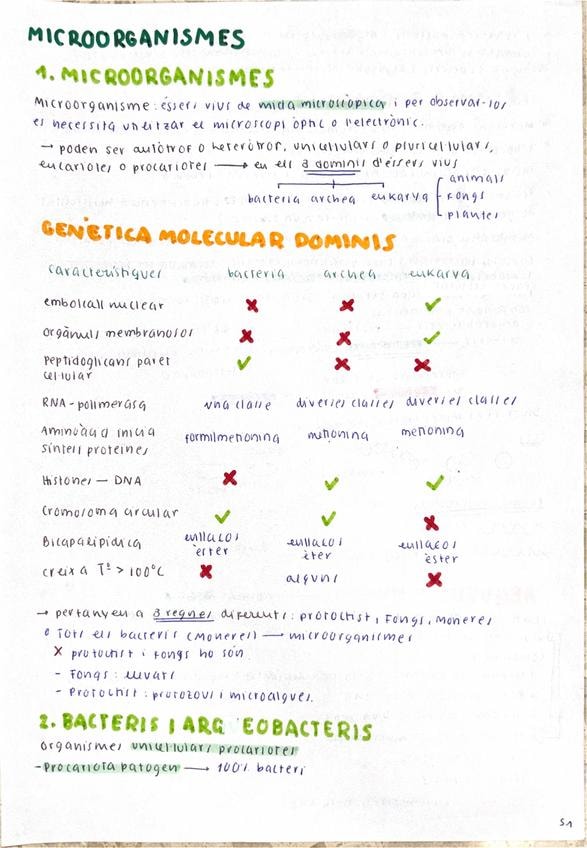 MICROORGANISMES
1. MICROORGANISMES
Microorganisme : éssers vius de mida microscòpica i per observar-los
es necessita utilitzar el microscopi òptic o l'electrònic.
→ poden ser autòtrof o heteròtrof, unicel·lulars o pluricel·lulars,
eucariotes o procariotes → en els 3 dominis d'éssers vius
bacteria archea eukarya animals
fongs
plantes
GENÈTICA MOLECULAR DOMINIS
característiques bacteria archea eukarya
embolcall nuclear ✗ ✗ ✓
orgànuls membranosos ✗ ✗ ✓
Peptidoglicans paret ✓ ✗ ✗
cel·lular
RNA-polimerasa una classe diverses classes diverses classes
Aminoàcid inicia formilmetionina metionina metionina
síntesi proteïnes
Histones — DNA ✗ ✓ ✓
Cromosoma circular ✓ ✓ ✗
Bicapa lipídica enllaços enllaços enllaços
èster èter èster
creix a Tª > 100°C ✗ alguns ✗
→ pertanyen a 3 regnes diferents : protoctist, Fongs, Moneres
o Tots els bacteris (Moneres) → microorganismes
✗ protoctist i fongs ho són.
- Fongs : llevats
- Protoctist : protozous i microalgues.
2. BACTERIS I ARQ EOBACTERIS
organismes unicel·lulars procariotes
- Procariota patogen → 100% bacteri
S1